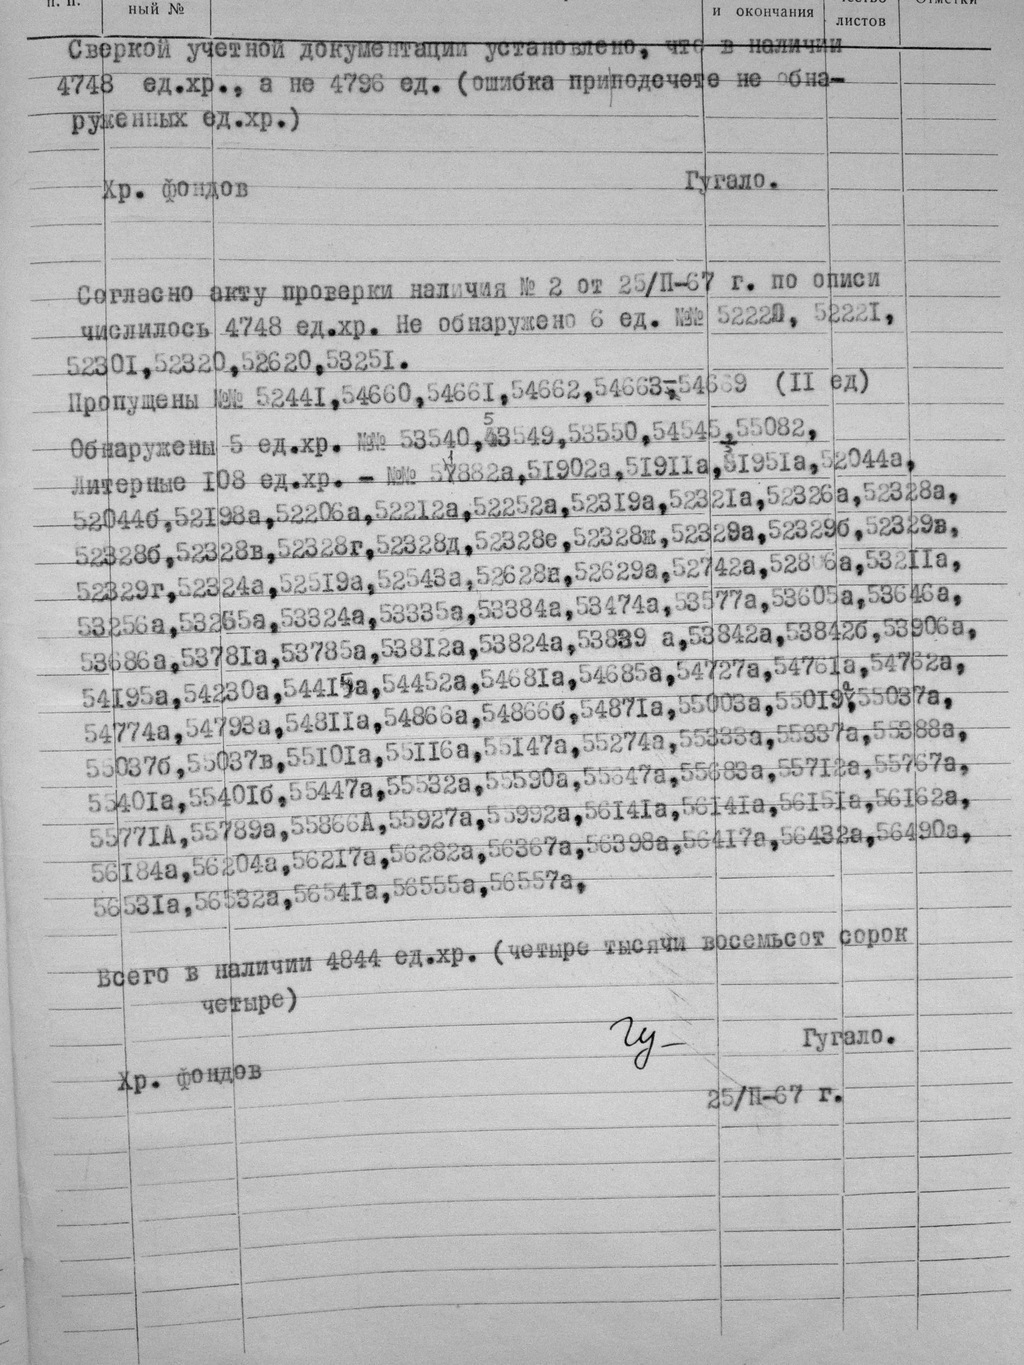 п. п.
ный №
и окончания
листов
Отметки
Сверкой учетной документации установлено, что в наличии
4748 ед.хр., а не 4796 ед. (ошибка при подсчете не обна-
руженных ед.хр.)
Хр. фондов Гугало.
Согласно акту проверки наличия № 2 от 25/П-67 г. по описи
числилось 4748 ед.хр. Не обнаружено 6 ед. №№ 52220, 52221,
52301,52320,52620,53251.
Пропущены №№ 52441,54660,54661,54662,54663-54669 (II ед)
Обнаружены 5 ед.хр. №№ 53540,53549,53550,54545,55082,
Литерные 108 ед.хр. - №№ 51882а,51902а,51911а,51951а,52044а,
52044б,52198а,52206а,52212а,52252а,52319а,52321а,52326а,52328а,
52328б,52328в,52328г,52328д,52328е,52328ж,52329а,52329б,52329в,
52329г,52324а,52519а,52543а,52628а,52629а,52742а,52806а,53211а,
53256а,53265а,53324а,53335а,53384а,53474а,53577а,53605а,53646а,
53686а,53781а,53785а,53812а,53824а,53839 а,53842а,53842б,53906а,
54195а,54230а,54415а,54452а,54681а,54685а,54727а,54761а,54762а,
54774а,54793а,54811а,54866а,54866б,54871а,55003а,55019а,55037а,
55037б,55037в,55101а,55116а,55147а,55274а,55333а,55337а,55388а,
55401а,55401б,55447а,55532а,55590а,55647а,55683а,55712а,55767а,
55771А,55789а,55866А,55927а,55992а,56141а,56141а,56151а,56162а,
56184а,56204а,56217а,56282а,56367а,56398а,56417а,56432а,56490а,
56531а,56532а,56541а,56555а,56557а,
Всего в наличии 4844 ед.хр. (четыре тысячи восемьсот сорок
четыре)
Гу-
Хр. фондов Гугало.
25/П-67 г.